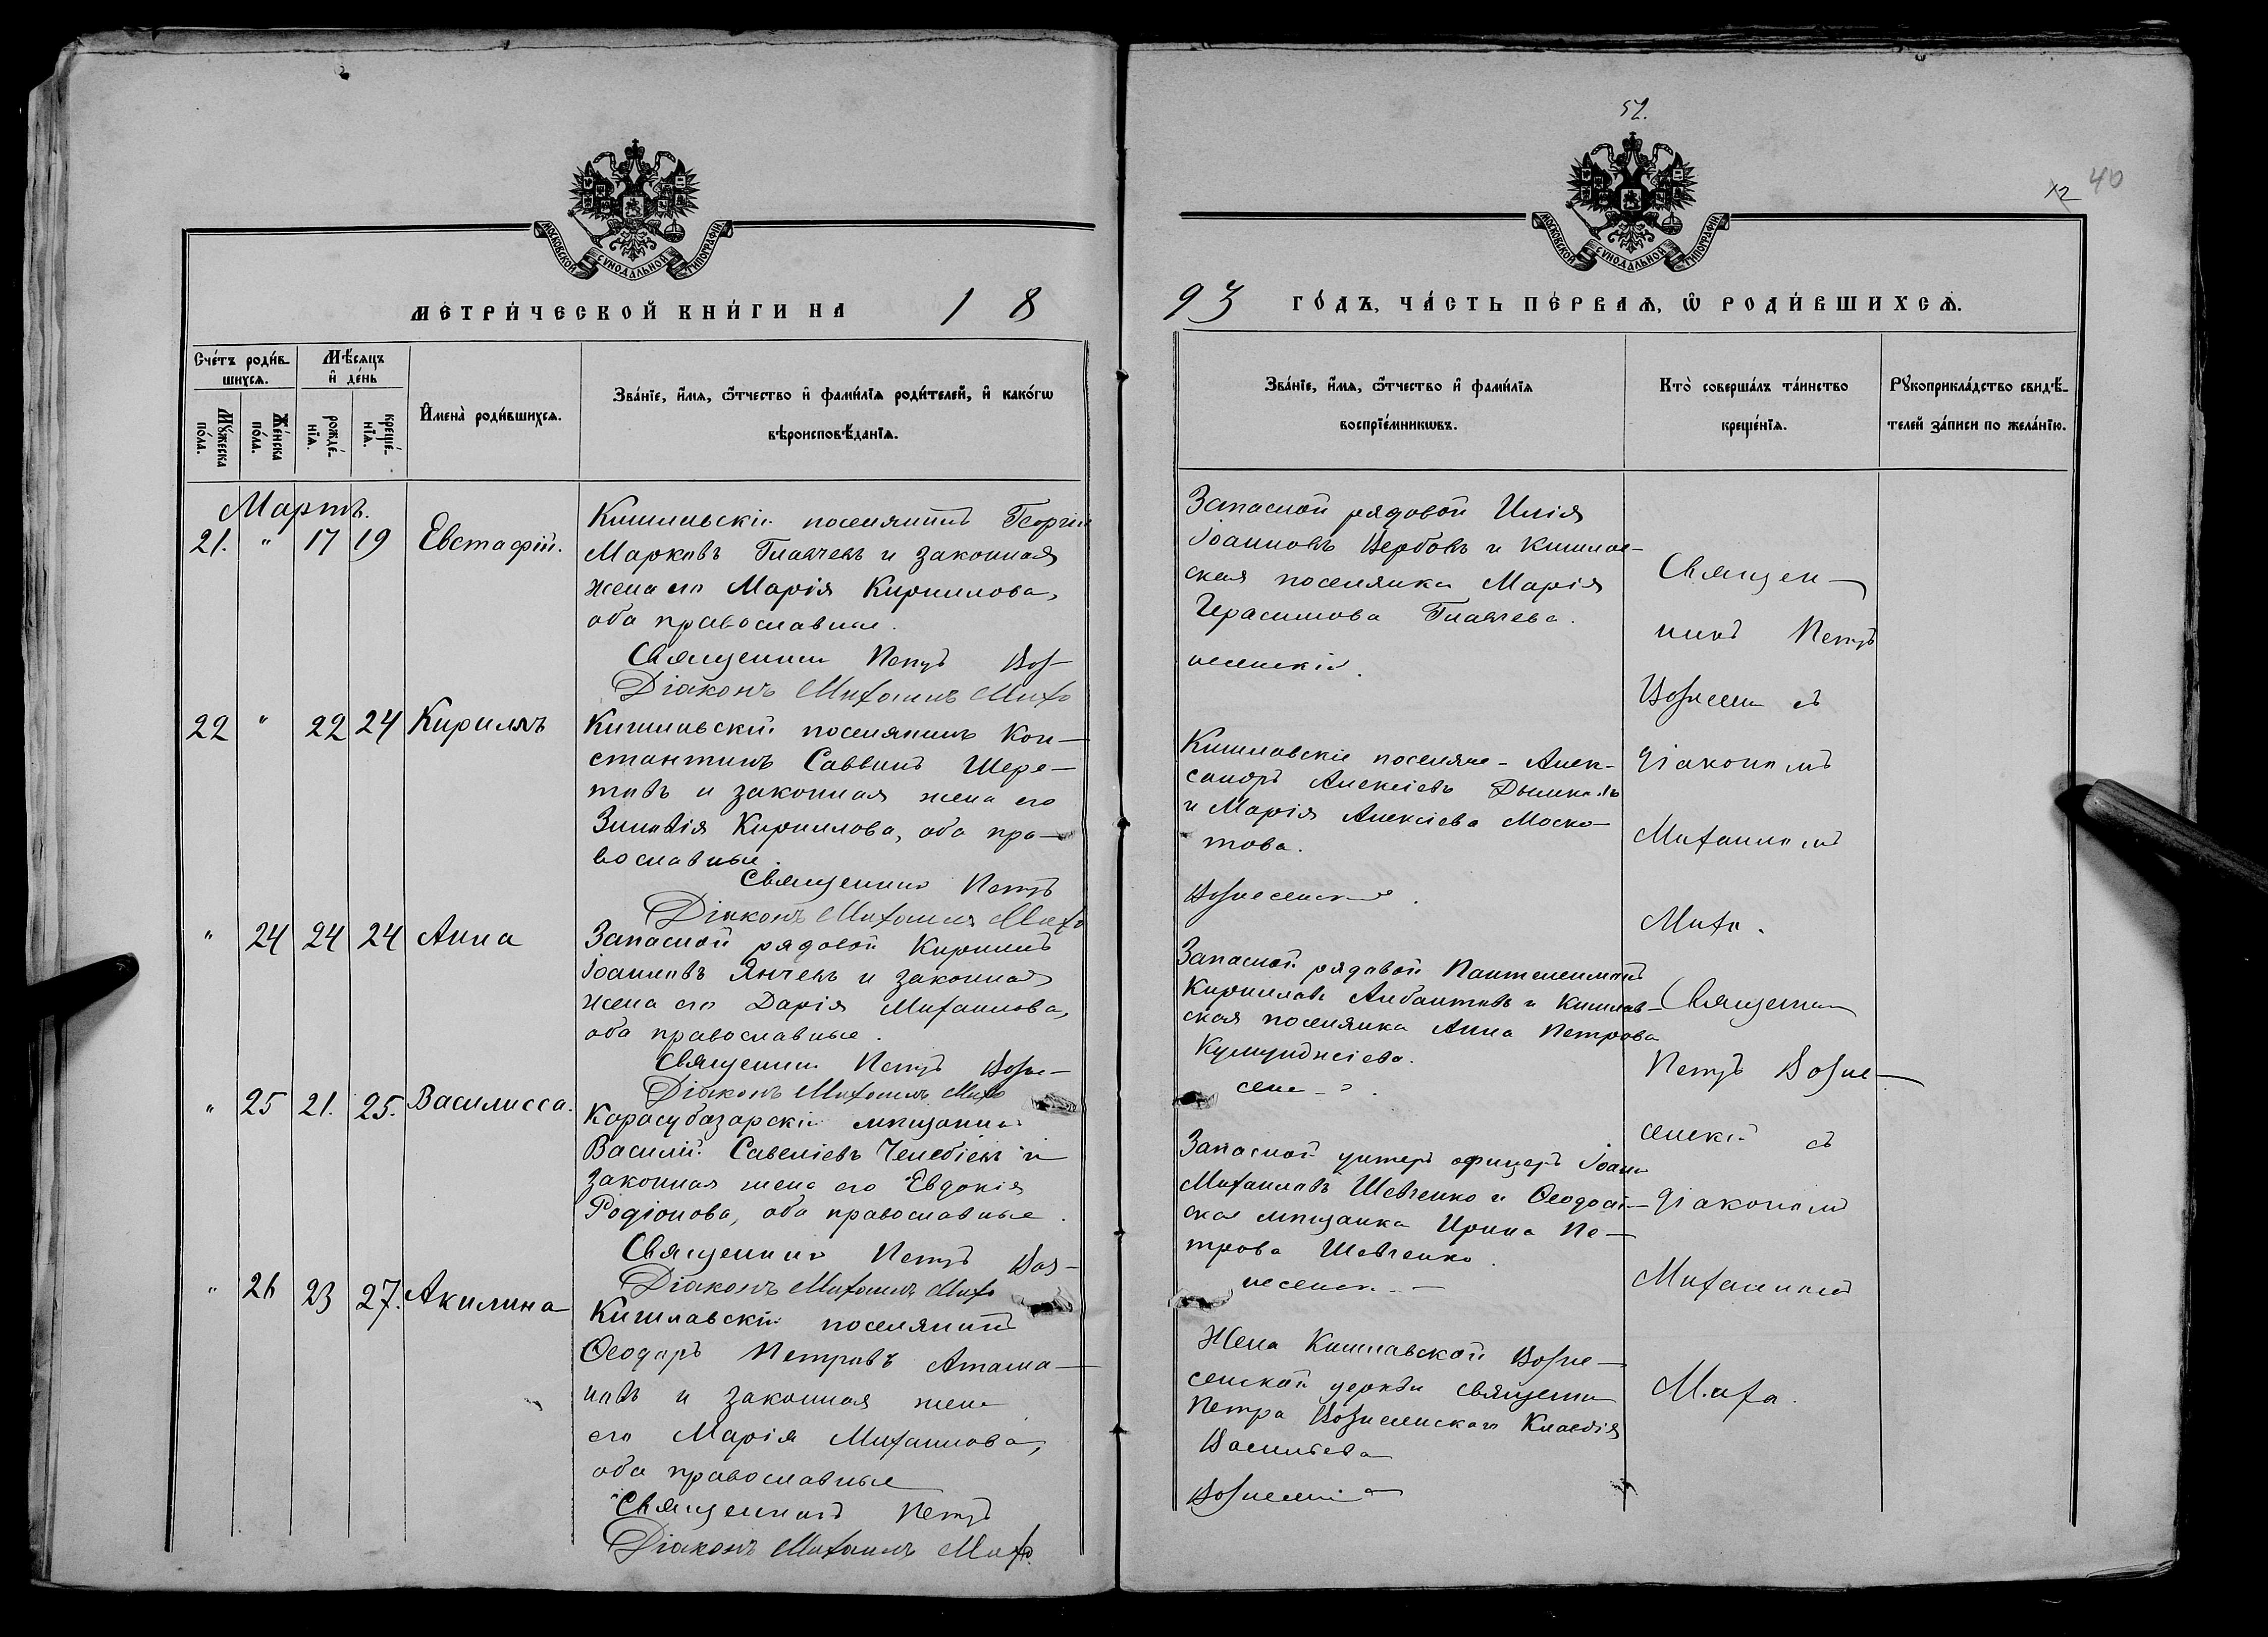 52.
12
40
МОСКОВСКОЙ СѴНОДАЛЬНОЙ ТИПОГРАФІИ
МОСКОВСКОЙ СѴНОДАЛЬНОЙ ТИПОГРАФІИ
МЕТРИ́ЧЕСКОЙ КНИ́ГИ НА 18
93 ГО́ДЪ, ЧА́СТЬ ПЕ́РВАѦ, Ѽ РОДИ́ВШИХСѦ.
Сче́тъ роди́в-
шихсѧ.
Мѣ́сѧцъ
и҆ де́нь
Мꙋ́жеска
по́ла.
Же́нска
по́ла.
рожде́-
нїѧ.
креще́-
нїѧ.
И҆мена̀ роди́вшихсѧ.
Зва́нїе, и҆́мѧ, ѻ҆́тчество и҆ фами́лїѧ роди́телей, и҆ како́гѡ
вѣроисповѣ́данїѧ.
Зва́нїе, и҆́мѧ, ѻ҆́тчество и҆ фами́лїѧ
воспрїе́мникѡвъ.
Кто̀ соверша́лъ та́инство
креще́нїѧ.
Рꙋкоприкла́дство свидѣ́-
телей за́писи по жела́нїю.
Мартъ.
21. " 17 19 Евстафій.
Кишлавскій поселянинъ Георгій
Марковъ Главчевъ и законная
жена его Марія Кириллова,
оба православные.
Священникъ Петръ Воз-
Діаконъ Михаилъ Михо
Запасной рядовой Илія
Іоанновъ Вербовъ и Кишлав-
ская поселянка Марія
Герасимова Главчева.
несенскій.
Священ-
никъ Петръ
Вознесен съ
діакономъ
Михаиломъ
Михо.
22 " 22 24 Кириллъ
Кишлавскій поселянинъ Кон-
стантинъ Саввинъ Шере-
товъ и законная жена его
Зиновія Кириллова, оба пра-
вославные.
Священникъ Петръ
Діаконъ Михаилъ Михо
Кишлавскіе поселяне - Алек-
сандръ Алексіевъ
и Марія Алексіева Моско-
това.
Вознесенскій.
" 24 24 24 Анна
Запасной рядовой Кириллъ
Іоанновъ Янчевъ и законная
жена его Дарія Михаилова,
оба православные.
Священникъ Петръ Возне-
Діаконъ Михаилъ Михо
Запасной рядовой Пантелеимонъ
Кирилловъ Арбантовъ и Кишлав-
ская поселянка Анна Петрова
сенс
Священникъ
Петръ Возне-
сенскій съ
діакономъ
Михаиломъ
Михо.
" 25 21. 25. Василисса.
Карасубазарскій мѣщанинъ
Василій Савеліевъ Челебіевъ и
законная жена его Евдокія
Родіонова, оба православные.
Священникъ Петръ Воз-
Діаконъ Михаилъ Михо
Запасной унтеръ офицеръ Іоаннъ
Михаиловъ Шевченко и Ѳеодосій-
ская мѣщанка Ирина Пе-
трова Шевченко.
несенск
" 26 23 27. Акилина
Кишлавскій поселянинъ
Ѳеодоръ Петровъ Атама-
новъ и законная жена
его Марія Михаилова,
оба православные
Священникъ Петръ
Діаконъ Михаилъ Михо.
Жена Кишлавской Возне-
сенской церкви священника
Петра Вознесенскаго Клавдія
Васильева
Вознесенскій